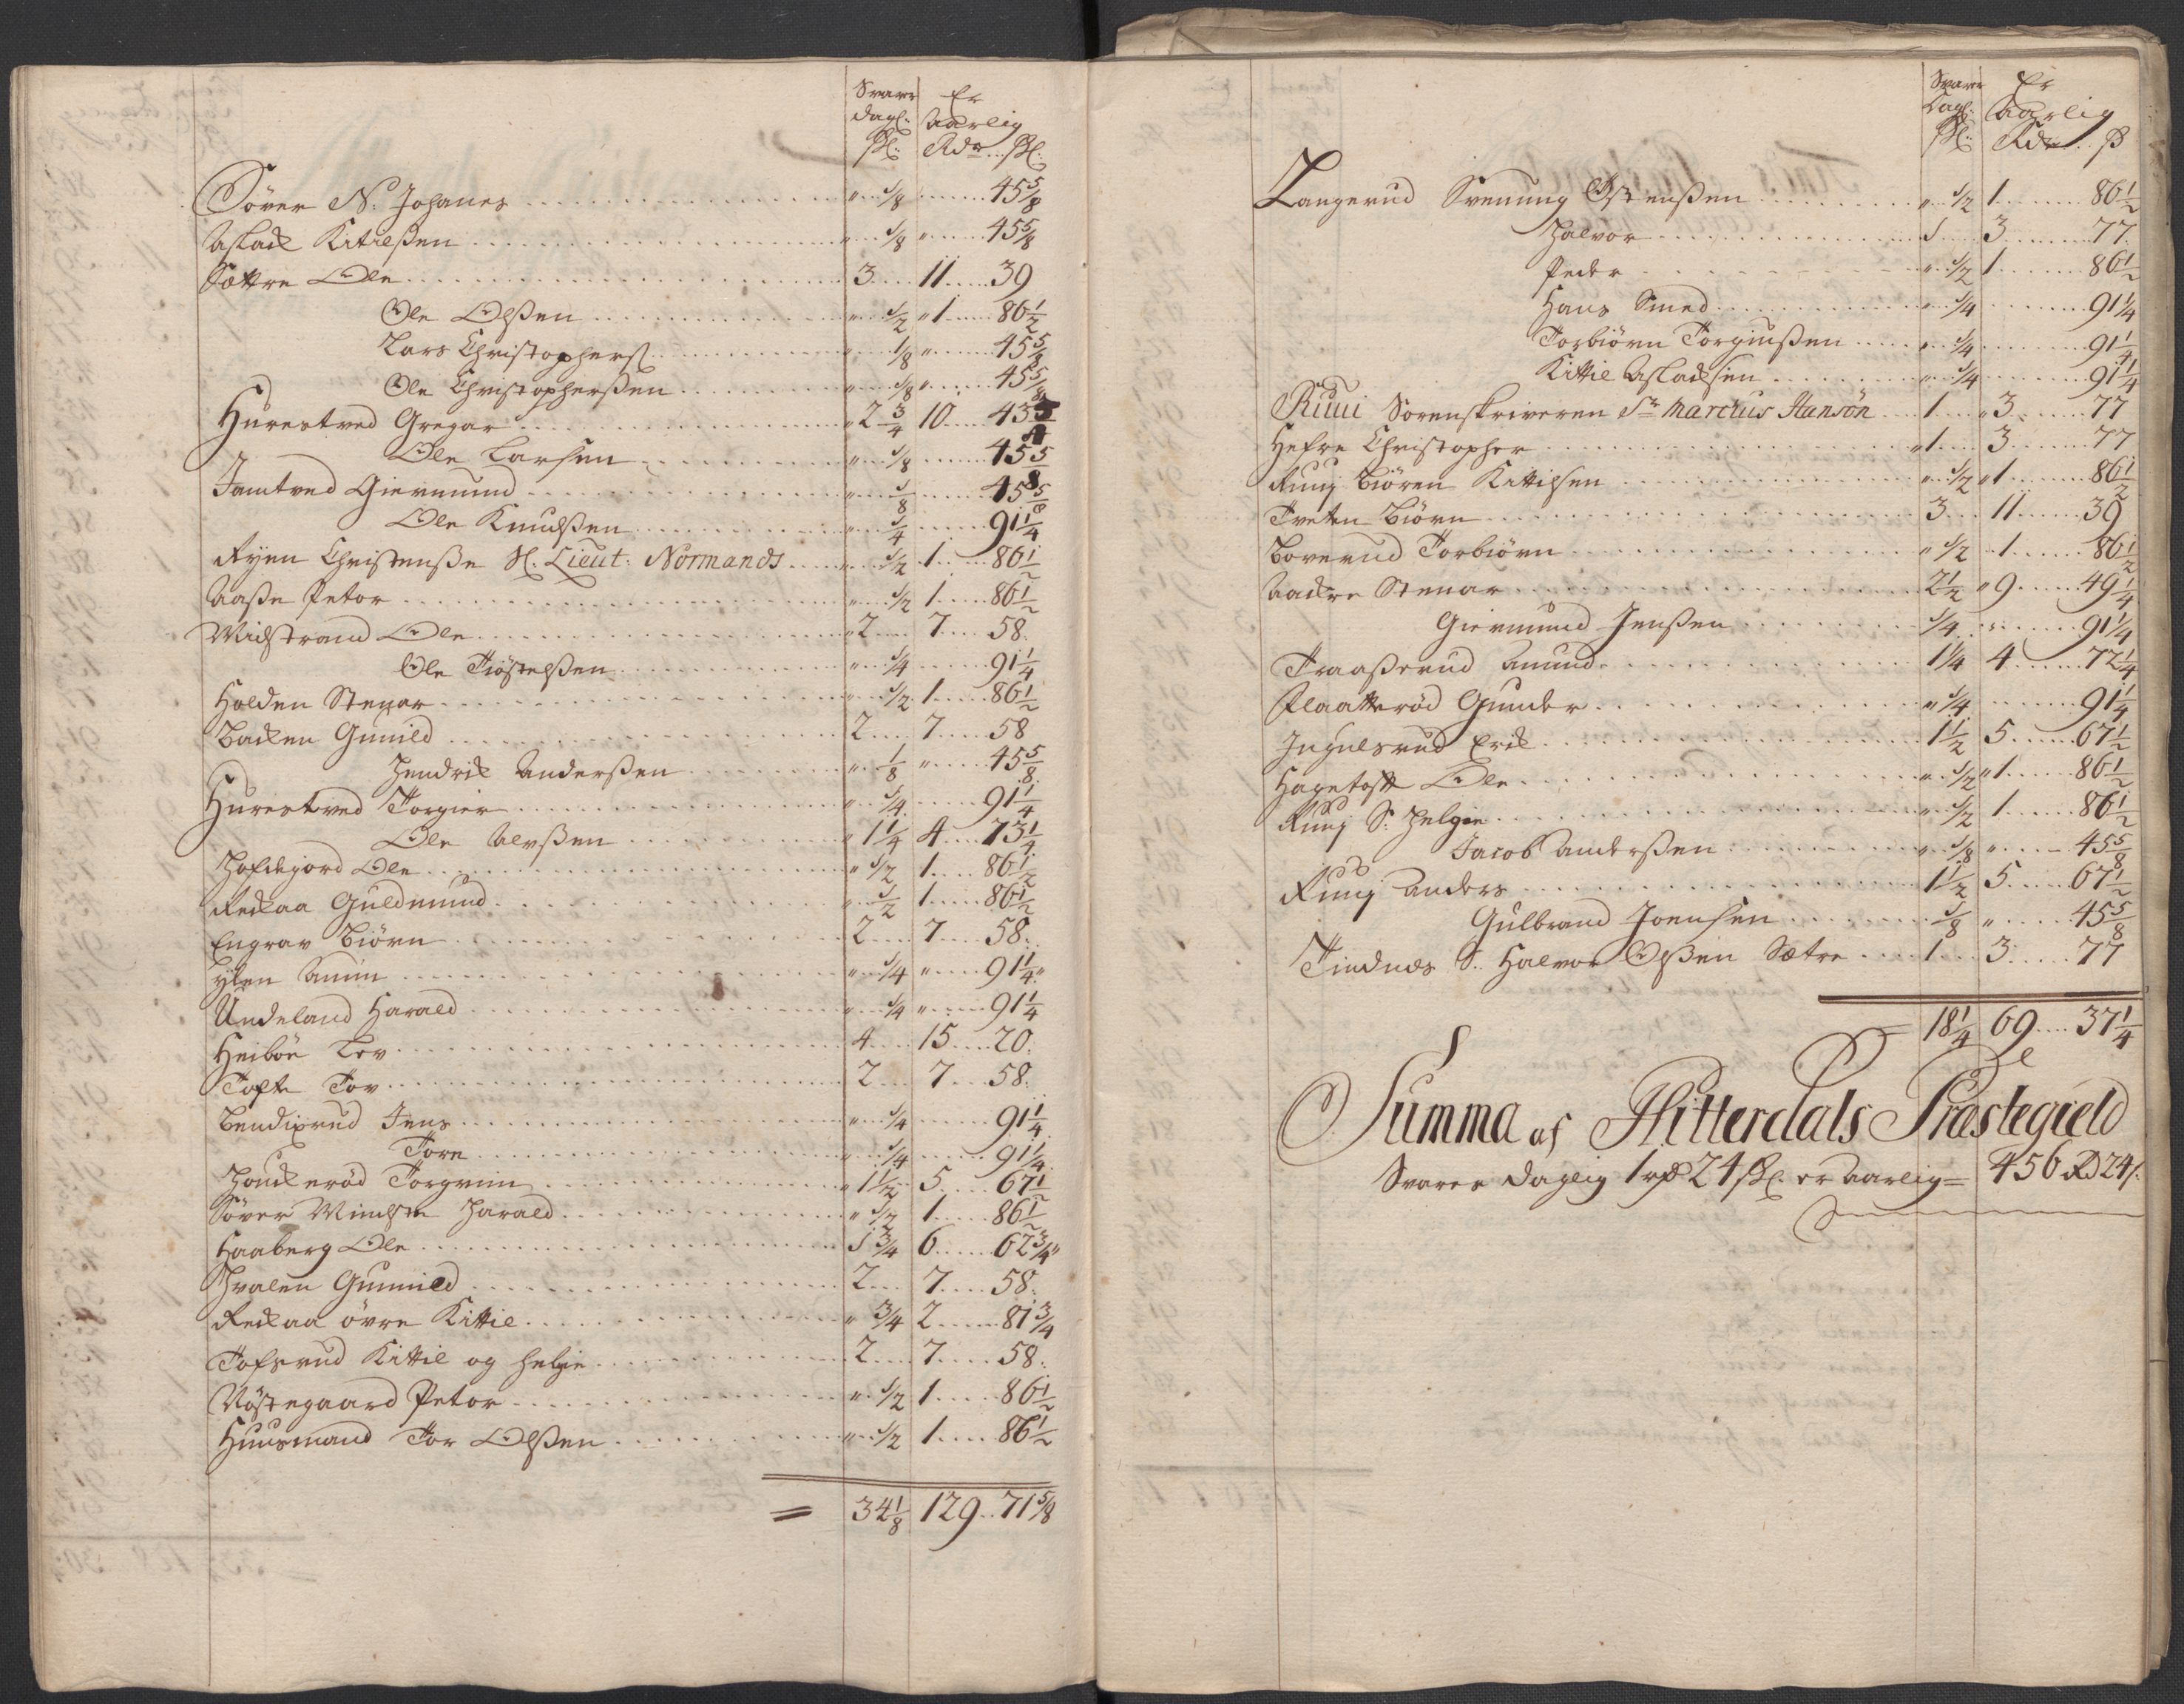 Svarer Er
dagl: Aarlig
sk: Rdr sk:
Söver N: Johanes 1/8 45 5/8
Aslack Kitilßen 1/8 45 5/8
Sættre Ole 3 11 39
Ole Olßen 1/2 1 86 1/2
Lars Christophers 1/8 45 5/8
Ole Christopherßen 1/8 45 5/8
Hurestved Gregar 2 3/4 10 43
Ole Larsen 1/8 45 5/8
Jamtved Giermund 1/8 45 5/8
Ole Knudßen 1/4 91 1/4
Ryen Christenße Sl. Lieut: Normands 1/2 1 86 1/2
Aaße Petor 1/2 1 86 1/2
Midstrand Ole 2 7 58
Ole Tiöstelßen 1/4 91 1/4
Holden Stenar 1/2 1 86 1/2
Backen Gunild 2 7 58
Hendrick Anderßen 1/8 45 5/8
Hurestved Torgier 1/4 91 1/4
Ole Alvßen 1 1/4 4 73 1/4
Hofdegiord Ole 1/2 1 86 1/2
Reckaa Guldmund 1/2 1 86 1/2
Engrav Biörn 2 7 58
Ylen Anun 1/4 91 1/4
Undeland Harald 1/4 91 1/4
Heiböe Lev 4 15 20
Tofte Tov 2 7 58
Bendixrud Jens 1/4 91 1/4
Tore 1/4 91 1/4
Houckeröd Torgrim 1 1/2 5 67 1/2
Söver Mindste Harald 1/2 1 86 1/2
Haaberg Ole 1 3/4 6 62 3/4
Hvalen Gunnild 2 7 58
Reckaa övre Kittil 3/4 2 81 3/4
Tofsrud Kittil og Helge 2 7 58
Nöstegaard Petor 1/2 1 86 1/2
Huusmand Tor Olßen 1/2 1 86 1/2
= 34 1/8 129 71 5/8
Svarer Er
Dagl: Aarlig
sk: Rdr ß
Langerud Svenung Östenßen 1/2 1 86 1/2
Halvor 1 3 77
Peder 1/2 1 86 1/2
Hans Smed 1/4 91 1/4
Torbiörn Torgiußen 1/4 91 1/4
Kittil Aslacksen 1/4 91 1/4
Ruui Sorenskriveren Sr Marcius Hansön 1 3 77
Hefre Christopher 1 3 77
Ruuj Biören Kittilsen 1/2 1 86 1/2
Tveten Biörn 3 11 39
Boverud Torbiörn 1/2 1 86 1/2
Aackre Stenar 2 1/2 9 49 1/4
Giermund Jenßen 1/4 91 1/4
Traaßerud Amund 1 1/4 4 72 1/4
Flaatteröd Gunder 1/4 91 1/4
Ingulsrud Erick 1 1/2 5 67 1/2
Hagetoft Ole 1/2 1 86 1/2
Ruuj S: Helgie 1/2 1 86 1/2
Jacob Anderßen 1/8 45 5/8
Ruuj Anders 1 1/2 5 67 1/2
Gulbrand Joensen 1/8 45 5/8
Tindnæs S: Halvor Olßen Sætre 1 3 77
18 1/4 69 37 1/4
Summa af Hitterdals Præstegield
Svarer daglig 1 rd 24 sk: er Aarlig = 456 Rd 24 s: